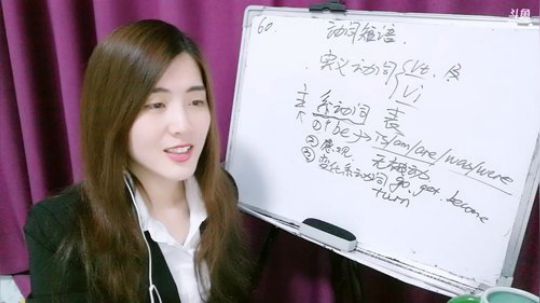 斗鱼
60. 动词短语.
实义动词 { vt. 及
vi
主 系动词 表
↑ ① be → is/am/are/was/were
② 感观 无被动
③ 变化系动词 go. get. become
turn